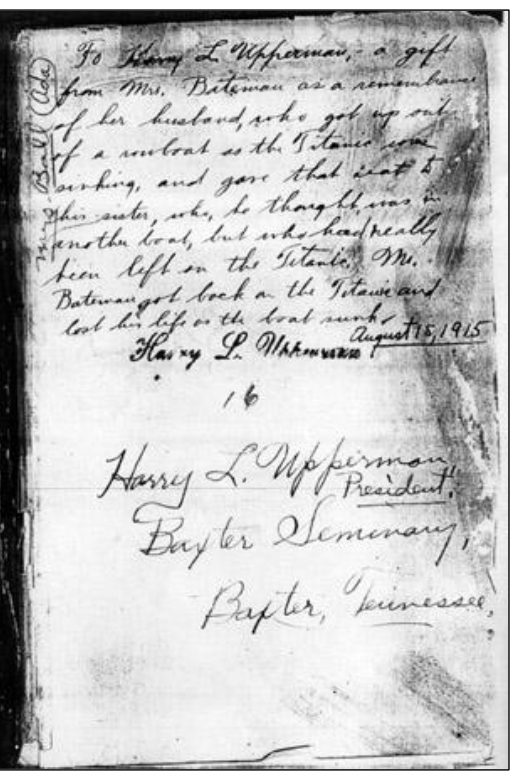 To Harry L. Upperman, - a gift
from Mrs. Bateman as a remembrance
of her husband, who got up out
of a rowboat as the Titanic was
sinking, and gave that seat to
his sister, who, he thought, was in
another boat, but who had really
been left on the Titanic. Mr.
Bateman got back on the Titanic and
lost his life as the boat sunk.
August 15, 1915
Harry L. Upperman
16
Harry L. Upperman
President,
Baxter Seminary,
Baxter, Tennessee.
Mrs. Ball (Ada)